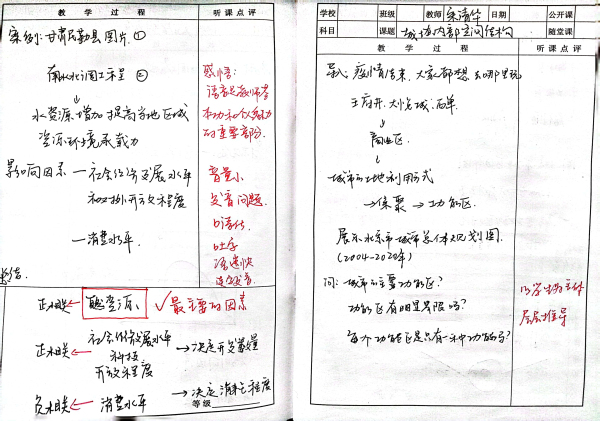 教 学 过 程
听 课 点 评
案例:甘肃民勤县图片①
南水北调工程②
水资源增加 提高当地区域
资源环境承载力
感悟:
语言是教师基
本功和人格魅力
的重要部分.
影响因素 — 社会经济发展水平
和对外开放程度
— 消费水平
音量小
发音问题
口语化
吐字
语速快
总结
正相关 ← 自然资源 ✓最主要的因素
正相关 ← 社会经济发展水平
科技
开放程度
→决定开发数量
负相关 ← 消费水平 → 决定消耗程度
等级
学校 班级 教师 日期 公开课
科目 课题 城市内部空间结构 随堂课
教 学 过 程
听 课 点 评
导入:疫情结束,大家都想去哪里玩
王府井、大悦城、西单
商业区
城市的土地利用形式
→集聚→功能区
展示北京市城市总体规划图
(2004-2020年)
问:城市的主要功能区?
功能区有明显界限吗?
每个功能区是只有一种功能吗?
以学生为主体
层层推导